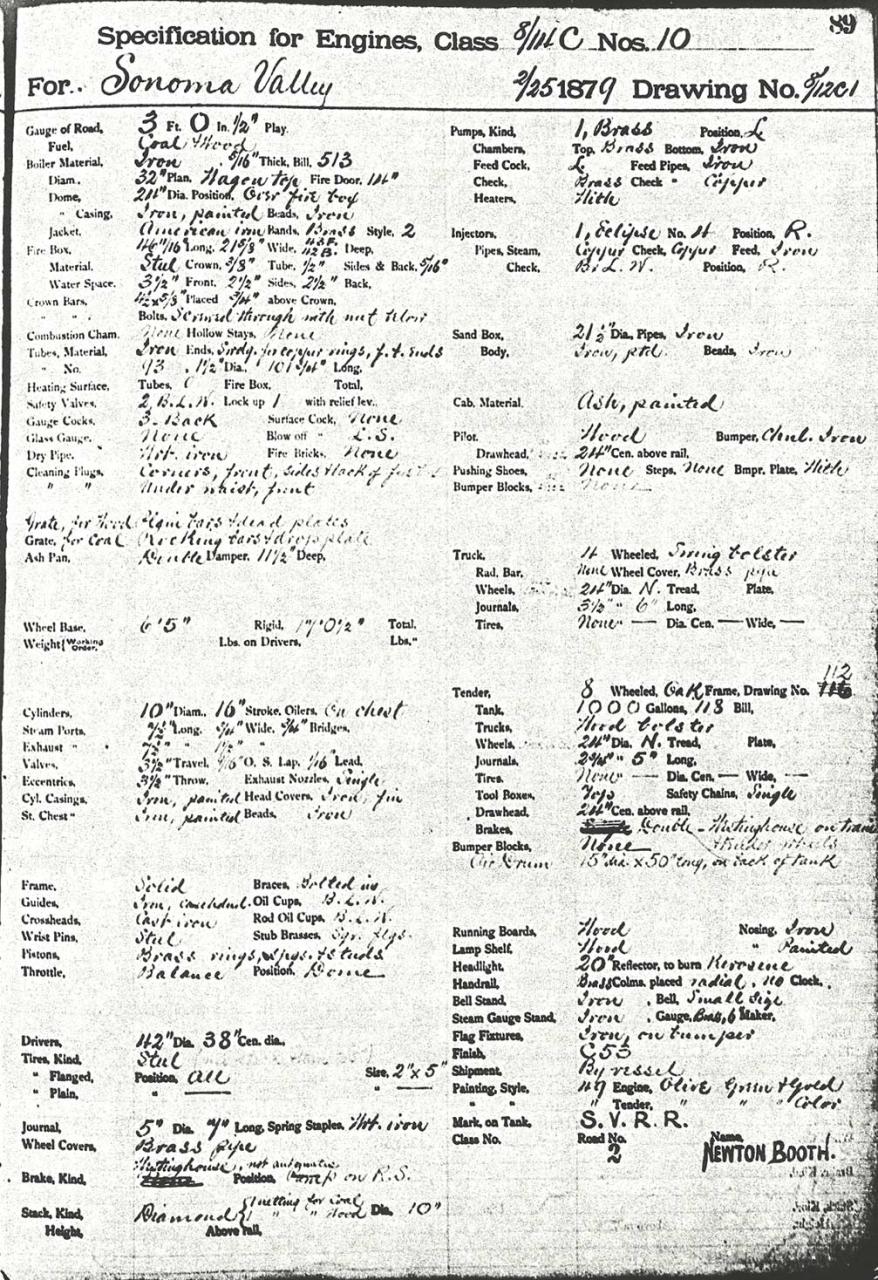 89
Specification for Engines, Class 8/11 C Nos. 10
For.. Sonoma Valley 2/25 1879 Drawing No. 8/12C1
Gauge of Road, 3 Ft. 0 In. 1/2" Play.
Fuel, Coal & Wood
Boiler Material, Iron 5/16" Thick, Bill, 513
Diam. 32" Plan, Wagon top Fire Door, 14"
Dome, 24" Dia. Position, Over fire box
" Casing, Iron, painted Beads, Iron
Jacket, American iron Bands, Brass Style, 2
Fire Box, 46 11/16" Long, 21 5/8" Wide, 43 F. 42 B. Deep,
Material, Steel Crown, 3/8" Tube, 1/2" Sides & Back, 5/16"
Water Space, 3 1/2" Front, 2 1/2" Sides, 2 1/2" Back,
Crown Bars, 4 1/2 x 5/8" Placed 3/4" above Crown,
" " Bolts, Screwed through with nut below
Combustion Cham. None Hollow Stays, None
Tubes, Material, Iron Ends, Swdg. for copper rings, f. & ends
" No. 93 . 1 1/2" Dia. 101 3/4" Long,
Heating Surface, Tubes, Fire Box, Total,
Safety Valves, 2, B.L.W. Lock up 1 with relief lev..
Gauge Cocks, 3. Back Surface Cock, None
Glass Gauge, None Blow off " L.S.
Dry Pipe, Wrt. iron Fire Bricks, None
Cleaning Plugs, Corners, front, sides & back of
" " Under waist, front
Grate, for Wood Plain bars & dead plates
Grate, for Coal Rocking bars & drop plate
Ash Pan, Double Damper, 11 1/2" Deep,
Wheel Base, 6' 5" Rigid, 17' 0 1/2" Total.
Weight { Working Order, Lbs. on Drivers, Lbs."
Cylinders, 10" Diam., 16" Stroke, Oilers, On chest
Steam Ports, 7 1/2" Long, 3/4" Wide, 3/4" Bridges,
Exhaust " 7 1/2" 1 1/2" "
Valves, 3 1/2" Travel, 9/16" O. S. Lap, 1/16" Lead,
Eccentrics, 3 1/2" Throw, Exhaust Nozzles, Single
Cyl. Casings, Iron, painted Head Covers, Iron, fin
St. Chest " Iron, painted Beads, Iron
Frame, Solid Braces, Bolted in
Guides, Iron, casehdnd. Oil Cups, B.L.W.
Crossheads, Cast iron Rod Oil Cups, B.L.W.
Wrist Pins, Steel Stub Brasses, Sqr. flgs.
Pistons, Brass rings, spgs. & studs
Throttle, Balance Position, Dome
Drivers, 42" Dia. 38" Cen. dia.,
Tires, Kind, Steel
" Flanged, Position, All Size, 2" x 5"
" Plain, " —— " ——
Journal, 5" Dia. 7" Long, Spring Staples, Wrt. iron
Wheel Covers, Brass pipe
Brake, Kind, Westinghouse, not automatic Position, Pump on R.S.
Stack, Kind, Diamond { netting for coal " " Wood Dia. 10"
Height, Above rail,
Pumps, Kind, 1, Brass Position, L
Chambers, Top, Brass Bottom, Iron
Feed Cock, L. Feed Pipes, Iron
Check, Brass Check " Copper
Heaters, With
Injectors, 1, Eclipse No. 4 Position, R.
Pipes, Steam, Copper Check, Copper Feed, Iron
Check, B. L. W. Position, R.
Sand Box, 21 1/2" Dia., Pipes, Iron
Body, Iron, ptd. Beads, Iron
Cab, Material. Ash, painted
Pilot. Wood Bumper, Chnl. Iron
Drawhead, 24" Cen. above rail,
Pushing Shoes, None Steps, None Bmpr. Plate, With
Bumper Blocks, None
Truck, 4 Wheeled, Swing bolster
Rad. Bar, None Wheel Cover, Brass pipe
Wheels, 24" Dia. N. Tread, Plate,
Journals, 3 1/2" " 6" Long,
Tires, None — Dia. Cen. — Wide, —
Tender, 8 Wheeled, Oak Frame, Drawing No. 112
Tank, 1000 Gallons, 118 Bill,
Trucks, Wood bolster
Wheels, 24" Dia. N. Tread, Plate,
Journals, " 5" Long,
Tires, None — Dia. Cen. — Wide, —
Tool Boxes, Tops Safety Chains, Single
Drawhead, 24" Cen. above rail,
Brakes, Double – Westinghouse on train
Bumper Blocks, None & tender wheels
Air Drum 15" dia x 50" long, on back of tank
Running Boards, Wood Nosing, Iron
Lamp Shelf, Wood " Painted
Headlight, 20" Reflector, to burn Kerosene
Handrail, Brass Colms. placed radial. no Clock,.
Bell Stand, Iron . Bell, Small size
Steam Gauge Stand, Iron . Gauge, Brass, 6 Maker,
Flag Fixtures, Iron, on bumper
Finish, C53
Shipment, By vessel
Painting, Style, 49 Engine, Olive Green & Gold
" " " Tender, " " " Color
Mark, on Tank, S. V. R. R.
Class No. Road No. 2 Name, NEWTON BOOTH.